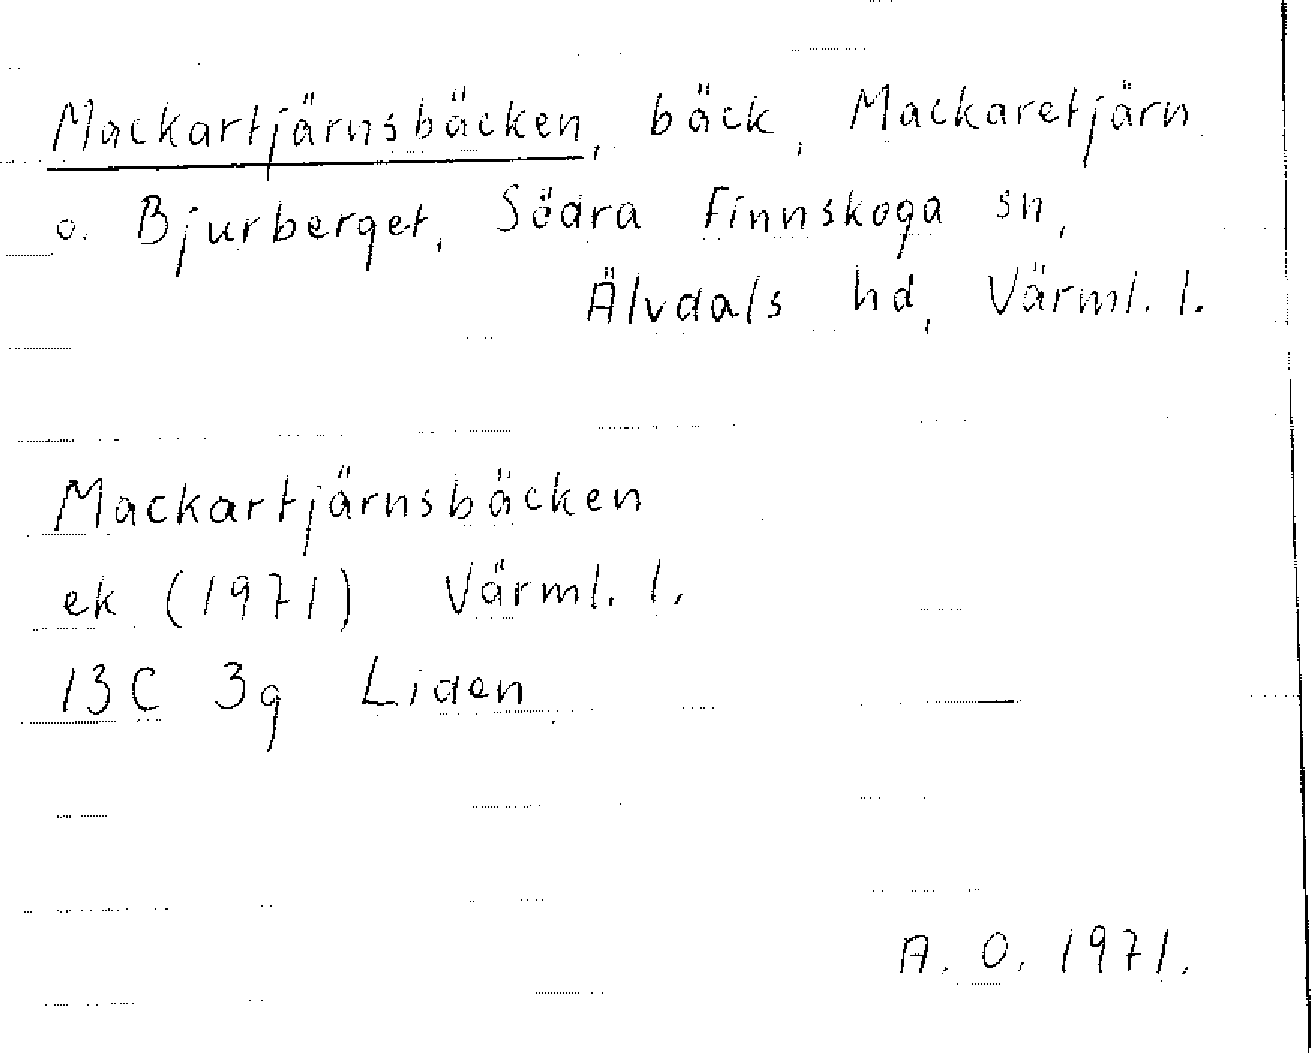 Mackartjärnsbäcken, bäck, Mackaretjärn
o. Bjurberget, Södra Finnskoga sn,
Älvdals hd, Värml. l.
Mackartjärnsbäcken
ek (1971) Värml. l.
13C 3g Liden
A. O. 1971.